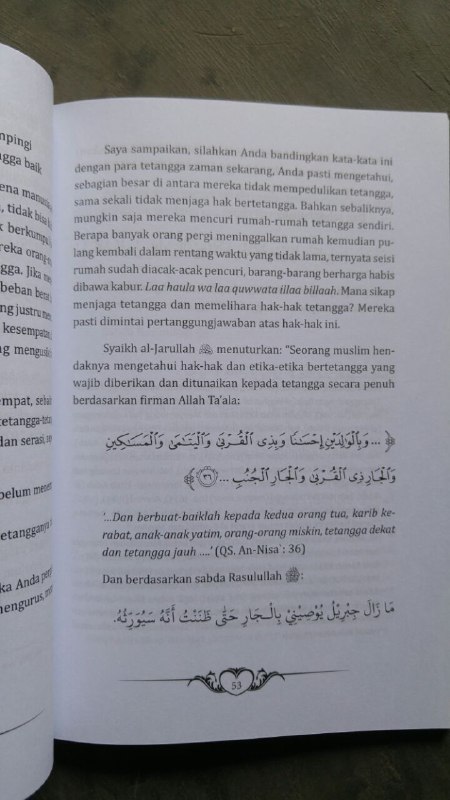 mpingi
gga baik
ena manusia
, tidak bisa
k berkumpul
reka orang-
gga. Jika
beban berat
g justru
kesempatan
ng mengusik
empat, sebaik
tetangga-
dan serasi,
belum
etangganya
ka Anda pergi
mengurus,
Saya sampaikan, silahkan Anda bandingkan kata-kata ini
dengan para tetangga zaman sekarang, Anda pasti mengetahui,
sebagian besar di antara mereka tidak mempedulikan tetangga,
sama sekali tidak menjaga hak bertetangga. Bahkan sebaliknya,
mungkin saja mereka mencuri rumah-rumah tetangga sendiri.
Berapa banyak orang pergi meninggalkan rumah kemudian pu-
lang kembali dalam rentang waktu yang tidak lama, ternyata seisi
rumah sudah diacak-acak pencuri, barang-barang berharga habis
dibawa kabur. Laa haula wa laa quwwata illaa billaah. Mana sikap
menjaga tetangga dan memelihara hak-hak tetangga? Mereka
pasti dimintai pertanggungjawaban atas hak-hak ini.
Syaikh al-Jarullah menuturkan: "Seorang muslim hen-
daknya mengetahui hak-hak dan etika-etika bertetangga yang
wajib diberikan dan ditunaikan kepada tetangga secara penuh
berdasarkan firman Allah Ta'ala:
﴿ ... وَبِالْوَالِدَيْنِ إِحْسَانًا وَبِذِى ٱلْقُرْبَىٰ وَٱلْيَتَامَىٰ وَٱلْمَسَاكِينِ
وَٱلْجَارِ ذِى ٱلْقُرْبَىٰ وَٱلْجَارِ ٱلْجُنُبِ ... ٣٦ ﴾
'...Dan berbuat-baiklah kepada kedua orang tua, karib ke-
rabat, anak-anak yatim, orang-orang miskin, tetangga dekat
dan tetangga jauh ....' (QS. An-Nisa`: 36)
Dan berdasarkan sabda Rasulullah ﷺ:
مَا زَالَ جِبْرِيْلُ يُوْصِيْنِيْ بِالْجَارِ حَتَّى ظَنَنْتُ أَنَّهُ سَيُوَرِّثُهُ.
53